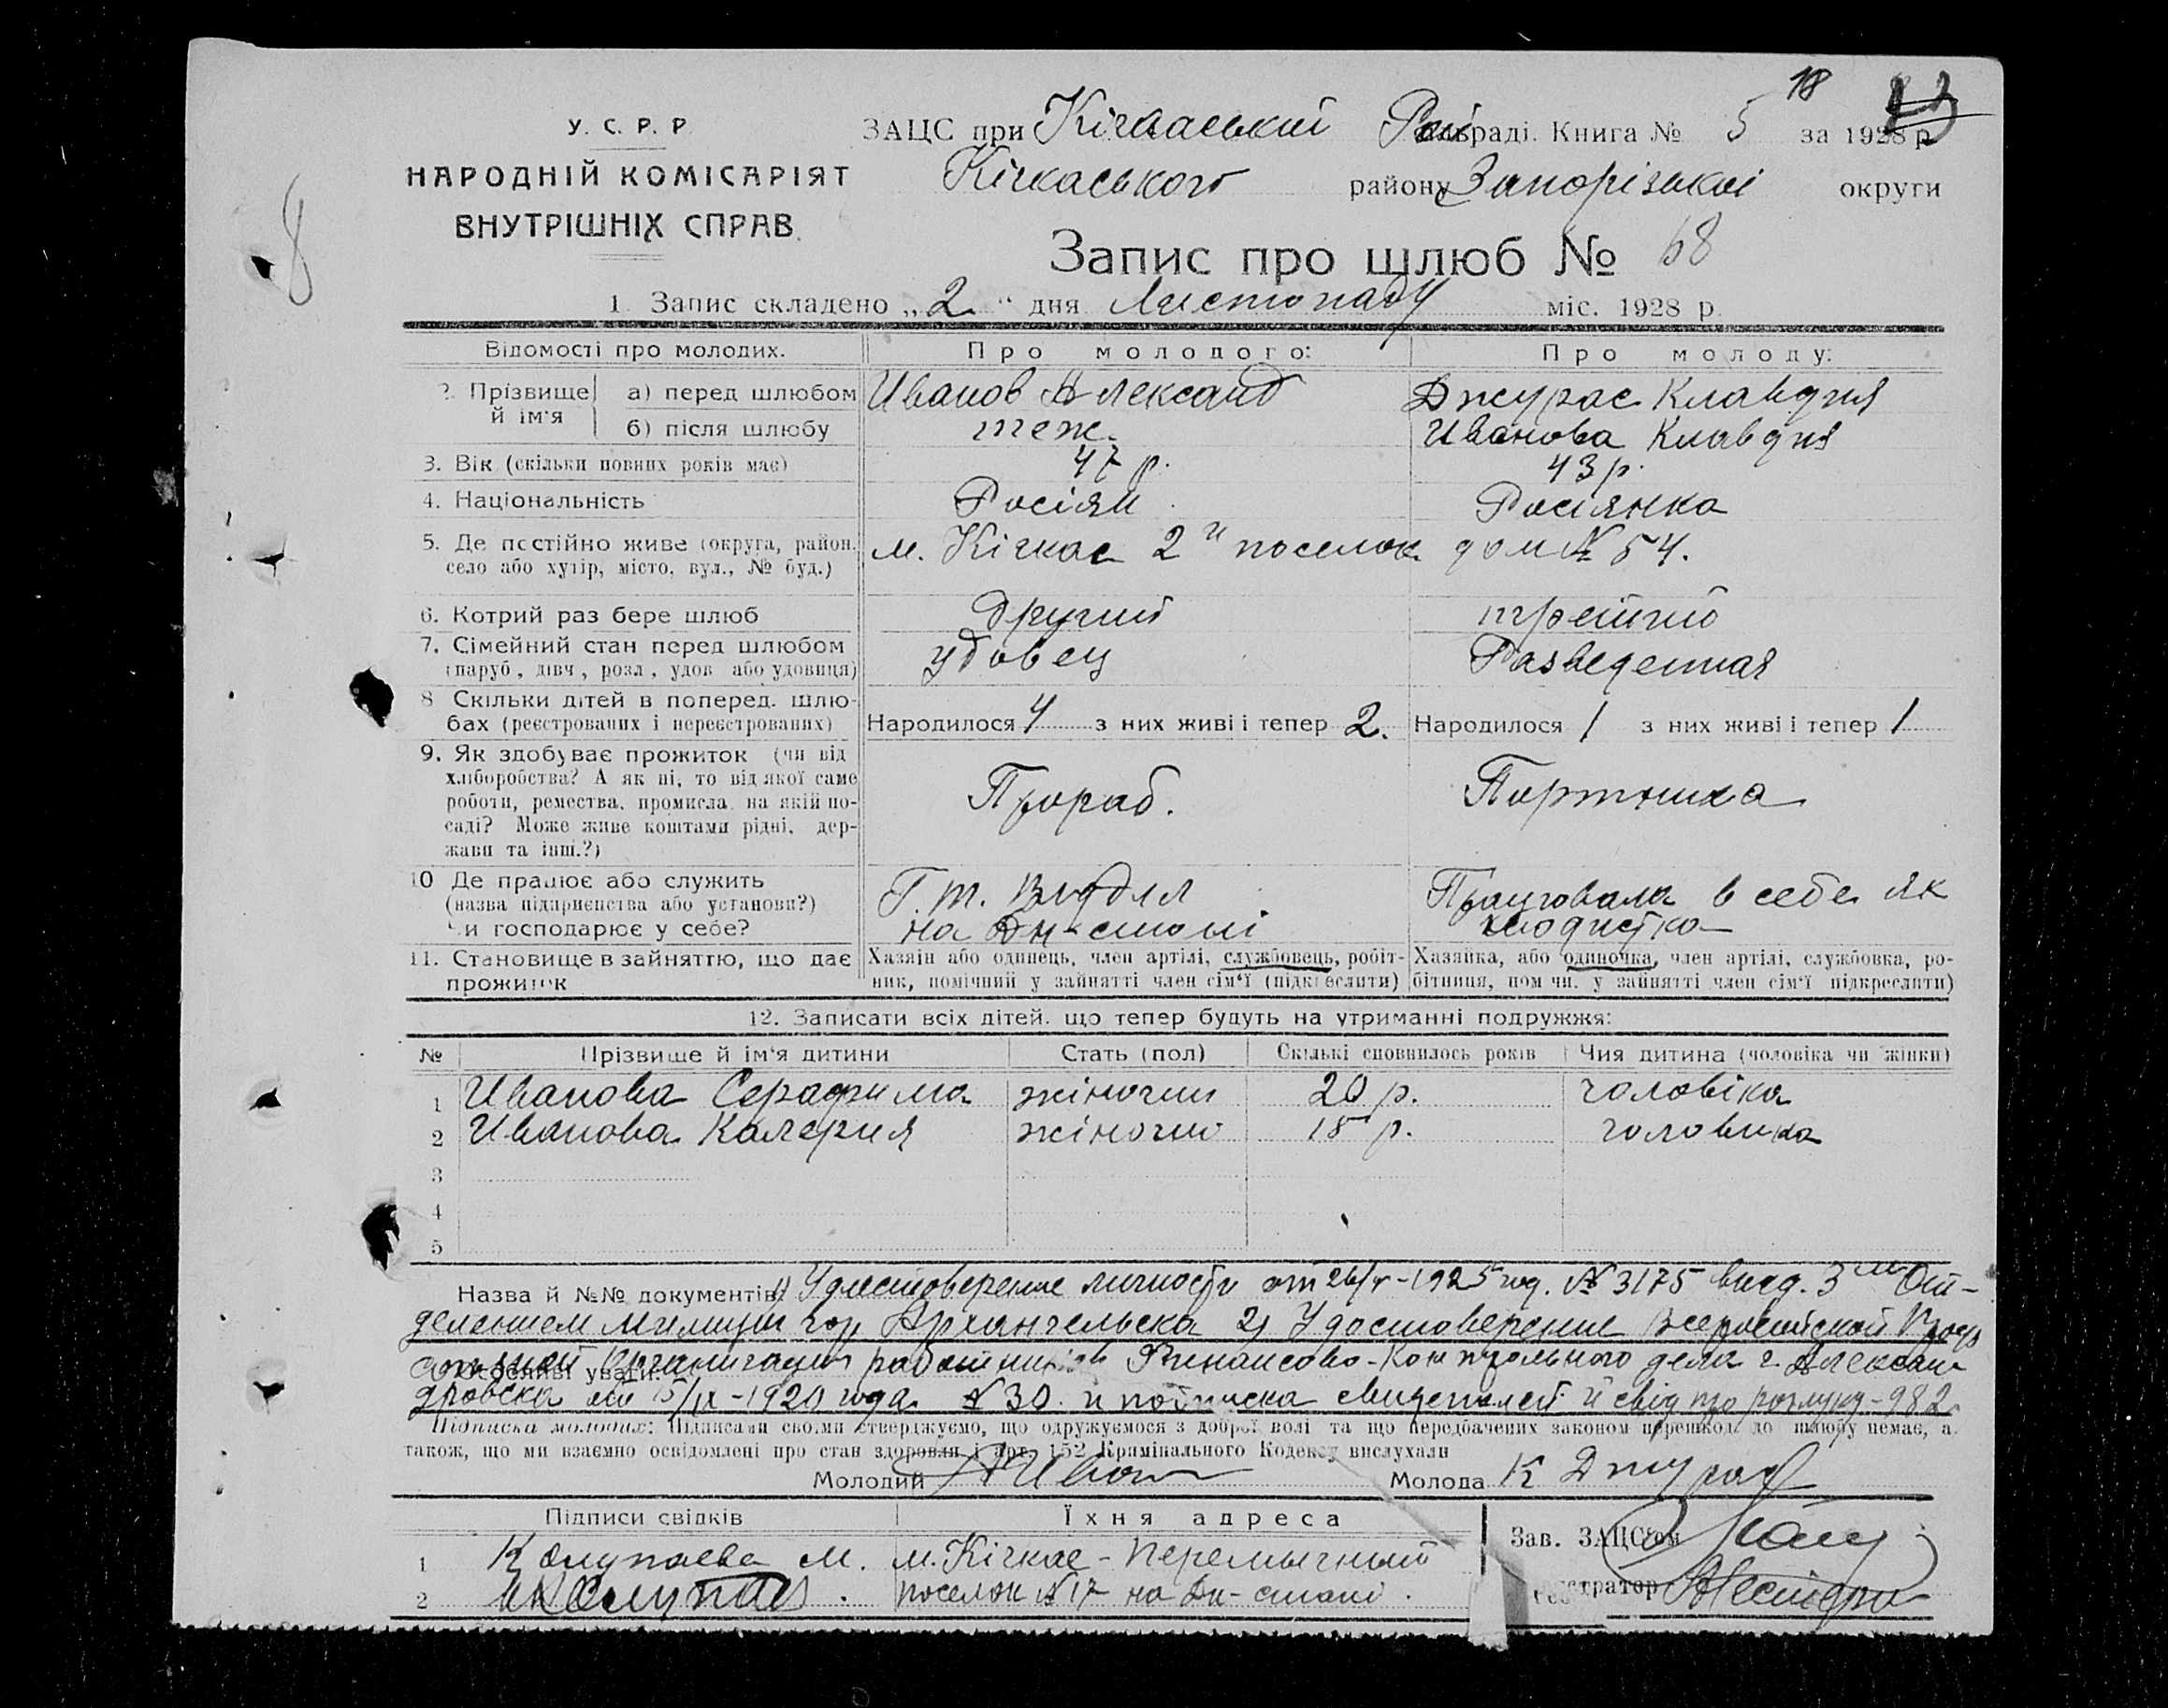 18 23
У. С. Р. Р.
НАРОДНІЙ КОМІСАРІЯТ
ВНУТРІШНІХ СПРАВ.
8
ЗАЦС при Кічкаській Рай раді. Книга № 5 за 1928 р
Кічкаського району Запорізької округи
Запис про шлюб № 68
1. Запис складено „2" дня Листопаду міс. 1928 р.
Відомості про молодих. Про молодого: Про молоду:
2. Прізвище й ім'я а) перед шлюбом Иванов Александ Джурас Клавдия
б) після шлюбу теж. Иванова Клавдия
3. Вік (скільки повних років має) 47 р. 43 р.
4. Національність Росіян Росіянка
5. Де постійно живе (округа, район, село або хутір, місто, вул., № буд.) м. Кічкас 2й поселок дом № 54.
6. Котрий раз бере шлюб Другий третій
7. Сімейний стан перед шлюбом (паруб., дівч., розл., удов. або удовиця) удовец Разведенная
8 Скільки дітей в поперед. шлюбах (реєстрованих і нереєстрованих) Народилося 4 з них живі і тепер 2. Народилося 1 з них живі і тепер 1
9. Як здобуває прожиток (чи від
хліборобства? А як ні, то від якої саме
роботи, ремества, промисла, на якій по-
саді? Може живе коштами рідні, дер-
жави та інш.?) Прораб. Портниха
10 Де працює або служить
(назва підприємства або установи?)
Чи господарює у себе? Г. т. на Дн-строї Працювала в себе як модистка
11. Становище в зайняттю, що дає прожиток
Хазяїн або одинець, член артілі, службовець, робіт-
ник, помічний у зайнятті член сім'ї (підкреслити)
Хазяйка, або одиночка, член артілі, службовка, ро-
бітниця, пом чн. у зайнятті член сім'ї підкреслити)
12. Записати всіх дітей, що тепер будуть на утриманні подружжя:
№ Прізвище й ім'я дитини Стать (пол) Скількі сповнилось років Чия дитина (чоловіка чи жінки)
1 Иванова Серафима жіночий 20 р. чоловіка
2 Иванова Калерия жіночий 15 р. чоловика
3
4
5
Назва й №№ документів: 1) Удостоверение личности от 26/ -1925 год. № 3175 выд. 3м От-
делением милиции гор Архангельска 2) Удостоверение Всероссийской
Особливі уваги: организации работников Финансово-Контрольного дела г. Алексан
дровска от 15/IX-1920 года № 30. и подписка свидетелей й свід про розлуку-982
Підписка молодих: Підписами своїми стверджуємо, що одружуємося з доброї волі та що передбачених законом перешкод до шлюбу немає, а
також, що ми взаємно освідомлені про стан здоровля і арт. 152 Кримінального Кодексу вислухали
Молодий А Иванов Молода К Джурас
Підписи свідків Їхня адреса
1 Колупаева М. м. Кічкас - Перемычный
2 поселок № 17 на Дн-строї.
Зав. ЗАЦС'ом
Реєстратор